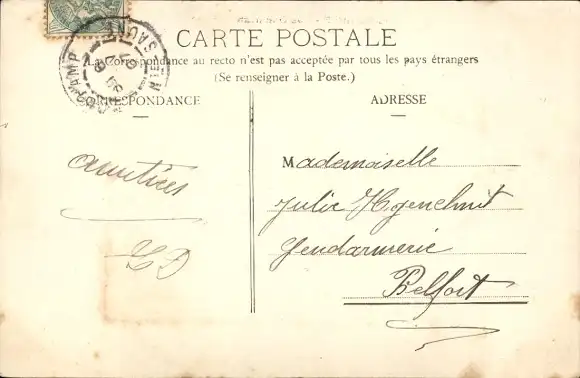 CARTE POSTALE
La Correspondance au recto n'est pas acceptée par tous les pays étrangers
(Se renseigner à la Poste.)
CORRESPONDANCE
ADRESSE
amitiés
Mademoiselle
Julie
Gendarmerie
Belfort